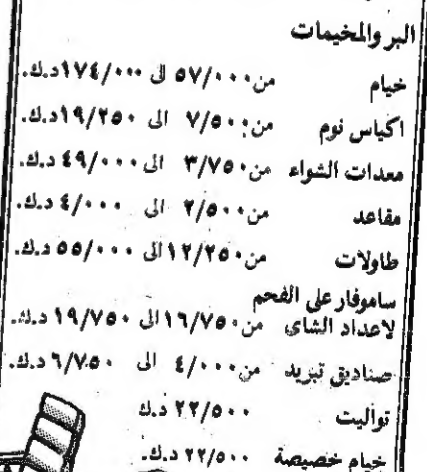 البر والمخيمات
خيام من ٥٧/٠٠٠ الى ١٧٤/٠٠٠ د.ك.
اكياس نوم من ٧/٥٠٠ الى ١٩/٢٥٠ د.ك.
معدات الشواء من ٣/٧٥٠ الى ٤٩/٠٠٠ د.ك.
مقاعد من ٢/٥٠٠ الى ٤/٠٠٠ د.ك.
طاولات من ١٢/٢٥٠ الى ٥٥/٠٠٠ د.ك.
ساموفار على الفحم
لاعداد الشاى من ١٦/٧٥٠ الى ١٩/٧٥٠ د.ك.
صناديق تبريد من ٤/٠٠٠ الى ٦/٧٥٠ د.ك.
تواليت ٢٢/٥٠٠ د.ك
خيام خصيصة ٢٢/٥٠٠ د.ك.